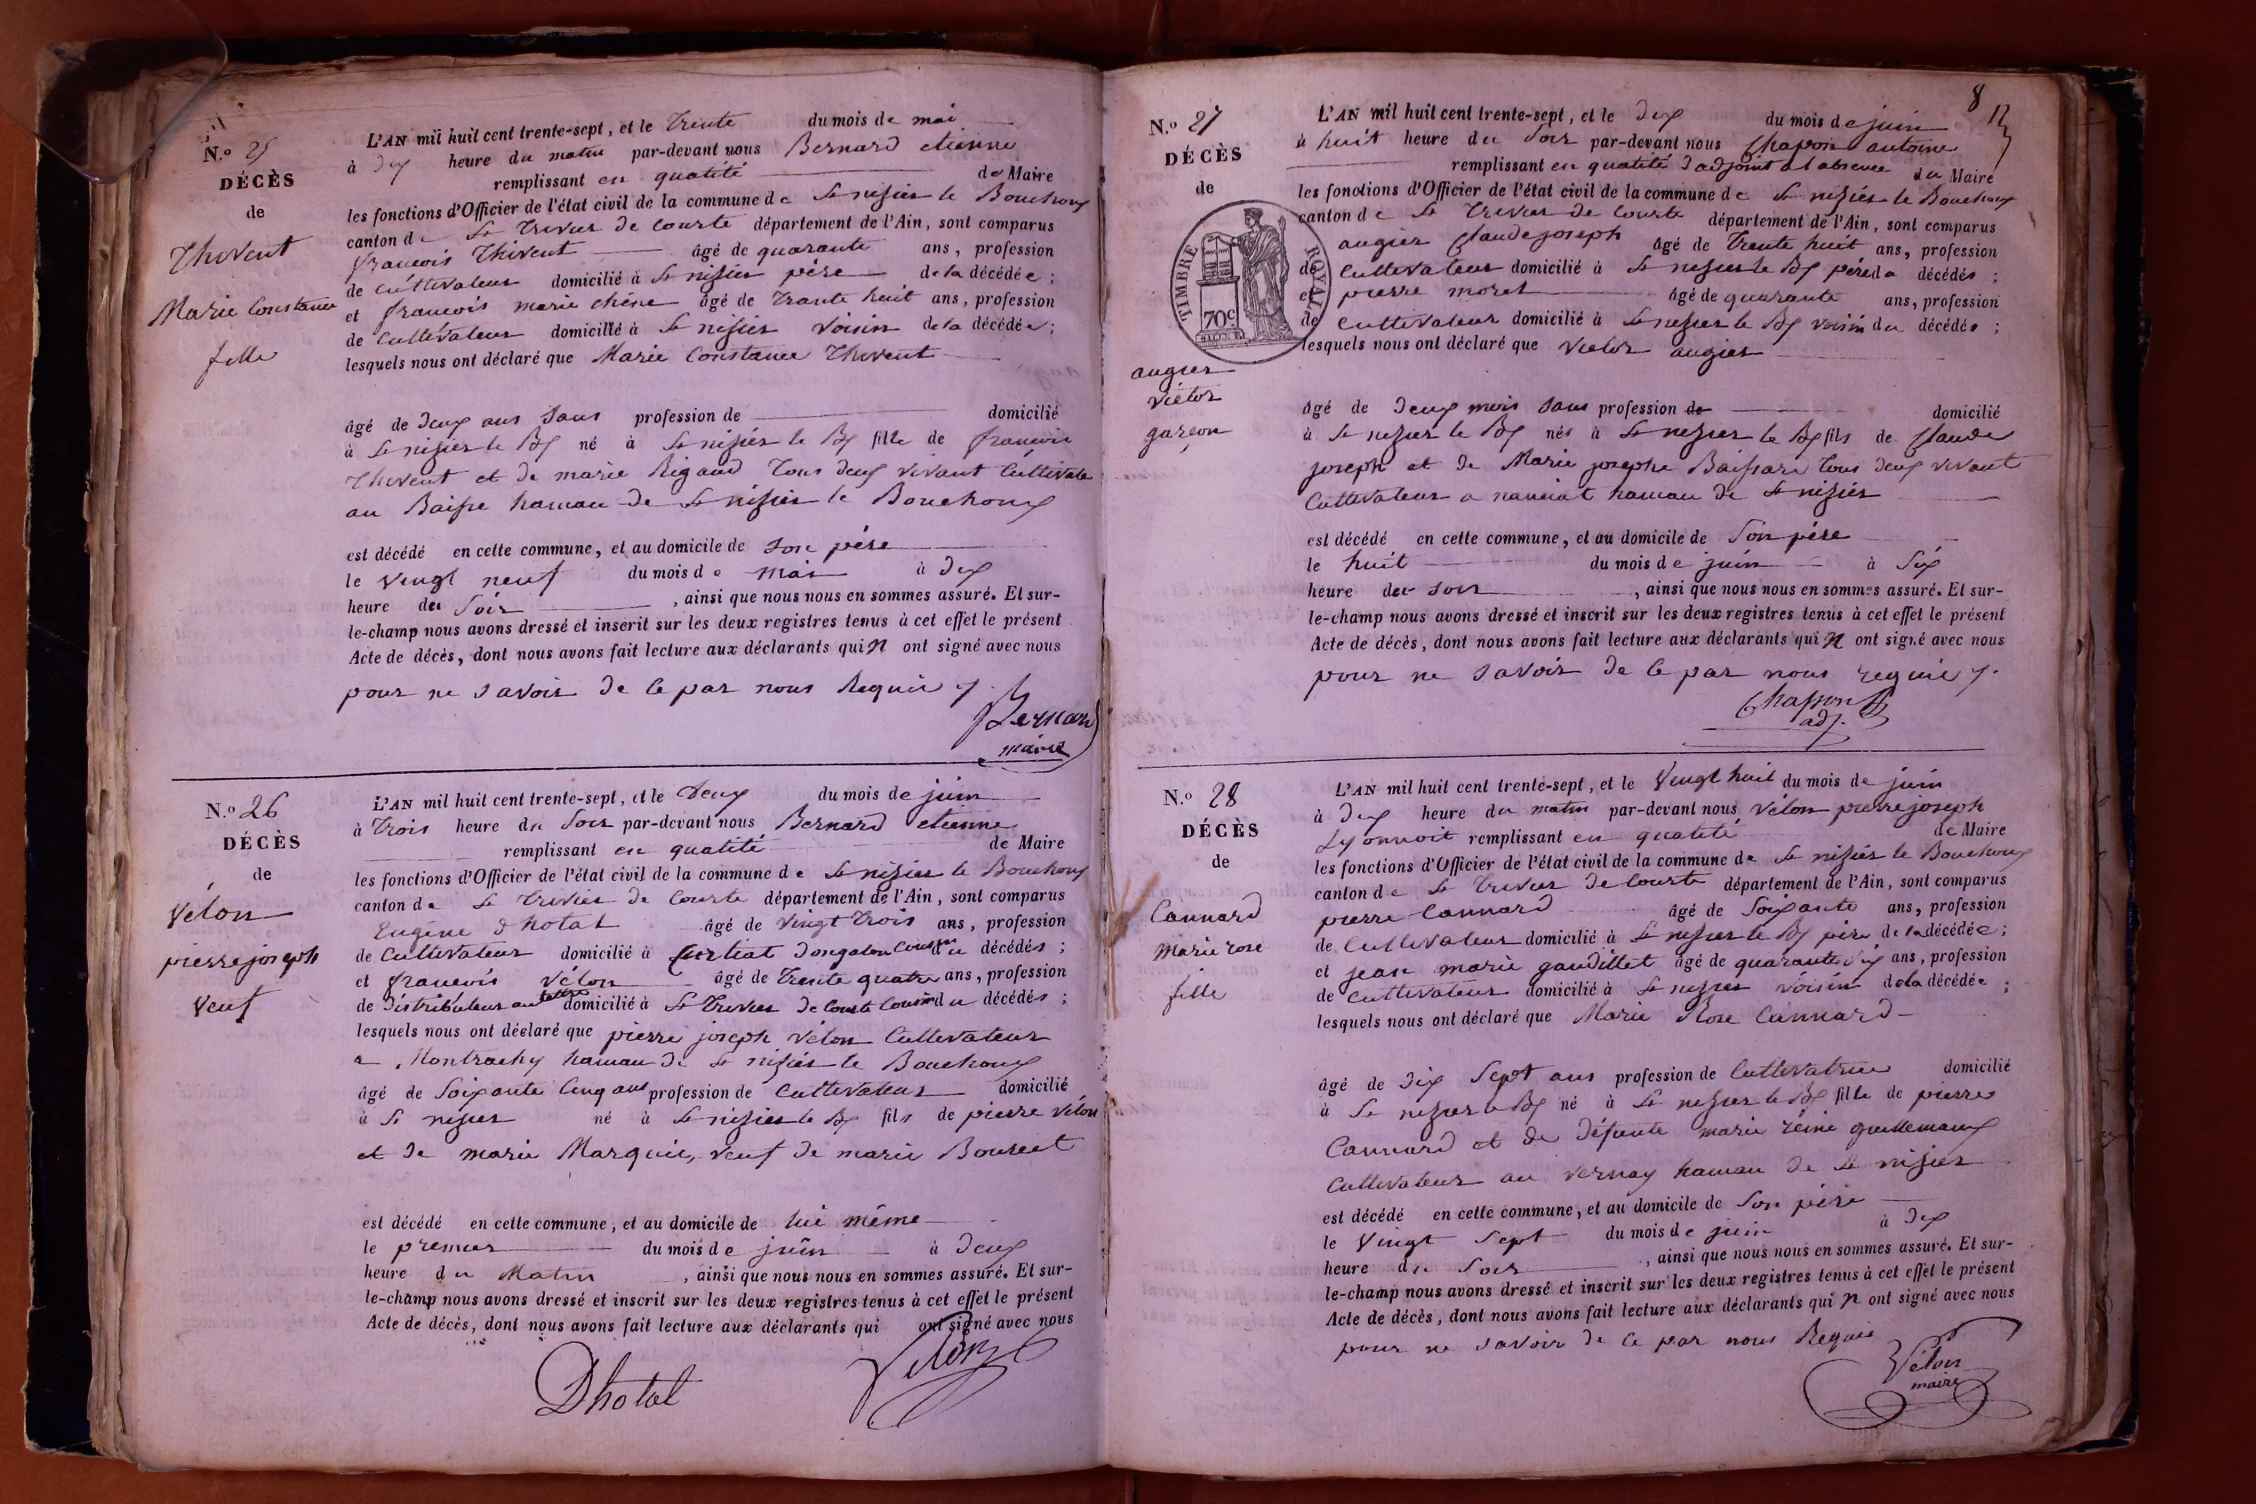 N.o 25
DÉCÈS
de
Thivent
Marie Constance
fille
L'AN mil huit cent trente-sept, et le trente du mois de mai
à dix heure du matin par-devant nous Bernard etienne
remplissant en quatité de Maire
les fonctions d'Officier de l'état civil de la commune de St nizier le Bouchoux
canton de St trivier de Courte département de l'Ain, sont comparus
françois Thivent âgé de quarante ans, profession
de cultivateur domicilié à St nizier père de la décédée ;
et francois marie chêne âgé de trante huit ans, profession
de cultivateur domicilié à St nizier voisin de la décédée ;
lesquels nous ont déclaré que Marie Constance Thivent
âgé de deux ans sans profession de domicilié
à St nizier le Bx né à St nizier le Bx fille de francois
Thivent et de marie Rigaud tous deux vivant Cultivate
au Baisse hamau de St nizier le Bouchoux
est décédé en cette commune, et au domicile de son père
le vingt neuf du mois de mai à dix
heure du soir , ainsi que nous nous en sommes assuré. Et sur-
le-champ nous avons dressé et inscrit sur les deux registres tenus à cet effet le présent
Acte de décès, dont nous avons fait lecture aux déclarants qui n ont signé avec nous
pour ne savoir de ce par nous Requis
Bernard
maire
N.o 26
DÉCÈS
de
Vélon
pierre joseph
veuf
L'AN mil huit cent trente-sept, et le deux du mois de juin
à trois heure du soir par-devant nous Bernard etienne
remplissant en quatité de Maire
les fonctions d'Officier de l'état civil de la commune de St nizier le Bouchoux
canton de St trivier de Courte département de l'Ain, sont comparus
Eugène dhotal âgé de vingt trois ans, profession
de Cultivateur domicilié à Curtiat dongalon cousin du décédés ;
et francois vélon âgé de trente quatre ans, profession
de distributeur au lettre domicilié à St trivier de Courte Cousin du décédés ;
lesquels nous ont déclaré que pierre joseph vélon Cultivateur
a Montrachy hamau de St nizier le Bouchoux
âgé de soixante cinq ans profession de cultivateur domicilié
à St nizier né à St nizier le Bx fils de pierre vélon
et de marie Marquis, veuf de marie Bourcet
est décédé en cette commune, et au domicile de lui même
le premier du mois de juin à deux
heure du Matin , ainsi que nous nous en sommes assuré. Et sur-
le-champ nous avons dressé et inscrit sur les deux registres tenus à cet effet le présent
Acte de décès, dont nous avons fait lecture aux déclarants qui ont signé avec nous
Dhotal
Vélon
8
N.o 27
DÉCÈS
de
TIMBRE ROYAL
70c
augier
victor
garcon
L'AN mil huit cent trente-sept, et le dix du mois de juin
à huit heure du soir par-devant nous Chapon antoine
remplissant en quatité d'adjoint a l absence du Maire
les fonctions d'Officier de l'état civil de la commune de St nizier le Bouchoux
canton de St trivier de Courte département de l'Ain, sont comparus
augier Claude joseph âgé de trente huit ans, profession
de Cultivateur domicilié à St nizier le Bx père du décédés ;
et pierre moret âgé de quarante ans, profession
de cultivateur domicilié à St nizier le Bx voisin du décédés ;
lesquels nous ont déclaré que victor augier
âgé de deux mois sans profession de domicilié
à St nizier le Bx nés à St nizier le Bx fils de Claude
joseph et de Marie josephe Baissard tous deux vivant
Cultivateur a nanciat hamau de St nizier
est décédé en cette commune, et au domicile de son père
le huit du mois de juin à six
heure du soir , ainsi que nous nous en sommes assuré. Et sur-
le-champ nous avons dressé et inscrit sur les deux registres tenus à cet effet le présent
Acte de décès, dont nous avons fait lecture aux déclarants qui n ont signé avec nous
pour ne savoir de ce par nous requis
Chapon
adj.
N.o 28
DÉCÈS
de
Cannard
Marie rose
fille
L'AN mil huit cent trente-sept, et le vingt huit du mois de juin
à dix heure du matin par-devant nous Vélon pierre joseph
Lyonnoit remplissant en quatité de Maire
les fonctions d'Officier de l'état civil de la commune de St nizier le Bouchoux
canton de St trivier de Courte département de l'Ain, sont comparus
pierre Cannard âgé de soixante ans, profession
de Cultivateur domicilié à St nizier le Bx père de la décédée ;
et jean marie gaudillet âgé de quarante six ans, profession
de cultivateur domicilié à St nizier voisin de la décédée ;
lesquels nous ont déclaré que Marie Rose Cannard
âgé de dix sept ans profession de Cultivatrice domicilié
à St nizier le Bx né à St nizier le Bx fille de pierre
Cannard et de défunte marie réine guillemaux
Cultivateur au vernay hamau de St nizier
est décédé en cette commune, et au domicile de son père
le vingt sept du mois de juin à dix
heure du soir , ainsi que nous nous en sommes assuré. Et sur-
le-champ nous avons dressé et inscrit sur les deux registres tenus à cet effet le présent
Acte de décès, dont nous avons fait lecture aux déclarants qui n ont signé avec nous
pour ne savoir de ce par nous Requis
Vélon
maire